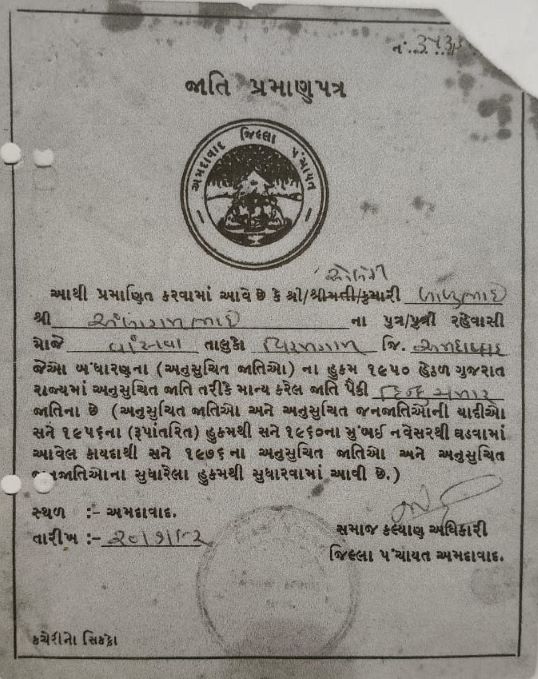 નં. ૩૫૩
જાતિ પ્રમાણપત્ર
અમદાવાદ જિલ્લા પંચાયત
આથી પ્રમાણિત કરવામાં આવે છે કે શ્રી/શ્રીમતી/કુમારી
શ્રી અંબારામભાઈ ના પુત્ર/પુત્રી રહેવાસી
ગ્રામે તાલુકા વિરમગામ જિ. અમદાવાદ
જેઓ બંધારણના (અનુસુચિત જાતિઓ) ના હુકમ ૧૯૫૦ હેઠળ ગુજરાત
રાજ્યમાં અનુસુચિત જાતિ તરીકે માન્ય કરેલ જાતિ પૈકી હિન્દુ ચમાર
જાતિના છે (અનુસુચિત જાતિઓ અને અનુસુચિત જનજાતિઓની યાદીઓ
સને ૧૯૫૬ના (રૂપાંતરિત) હુકમથી સને ૧૯૬૦ના મુંબઈ નવેસરથી ઘડવામાં
આવેલ કાયદાથી સને ૧૯૭૬ના અનુસુચિત જાતિઓ અને અનુસુચિત
જનજાતિઓના સુધારેલા હુકમથી સુધારવામાં આવી છે.)
સ્થળ :- અમદાવાદ.
તારીખ :-
સમાજ કલ્યાણ અધિકારી
જિલ્લા પંચાયત અમદાવાદ.
કચેરીનો સિક્કો